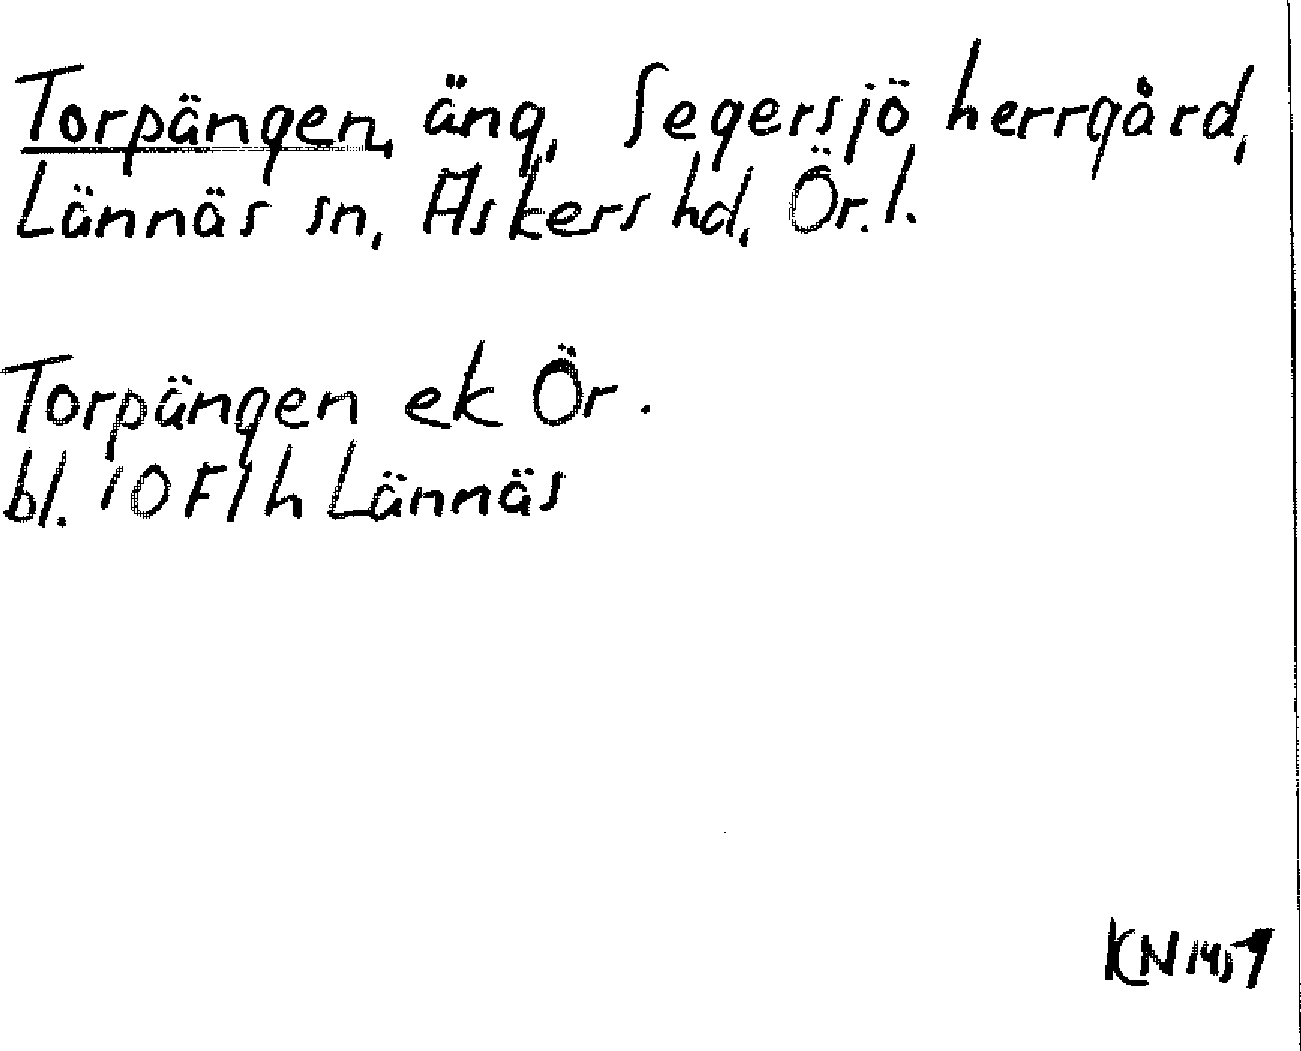 Torpängen, äng, Segersjö herrgård,
Lännäs sn, Askers hd, Ör. l.
Torpängen ek Ör.
bl. 10F1h Lännäs